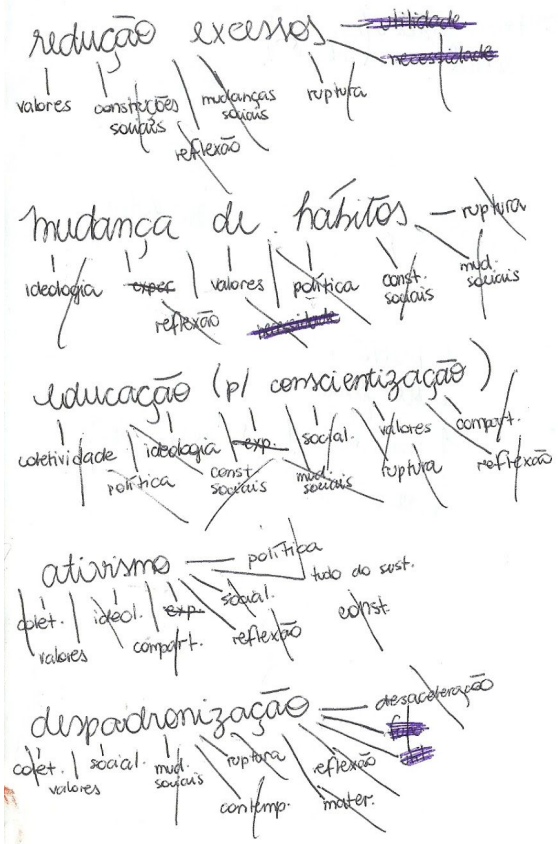 redução excessos
utilidade
necessidade
valores
construções
sociais
mudanças
sociais
ruptura
reflexão
mudança de hábitos
ruptura
ideologia
exper
valores
política
const.
sociais
mud.
sociais
reflexão
necessidade
educação (p/ conscientização)
coletividade
ideologia
exp.
social.
valores
compart.
política
const
sociais
mud.
sociais
ruptura
reflexão
ativismo
política
tudo do sust.
colet.
ideol.
exp.
social.
const.
valores
compart.
reflexão
despadronização
desaceleração
colet.
social.
mud.
sociais
ruptura
reflexão
valores
contemp.
mater.